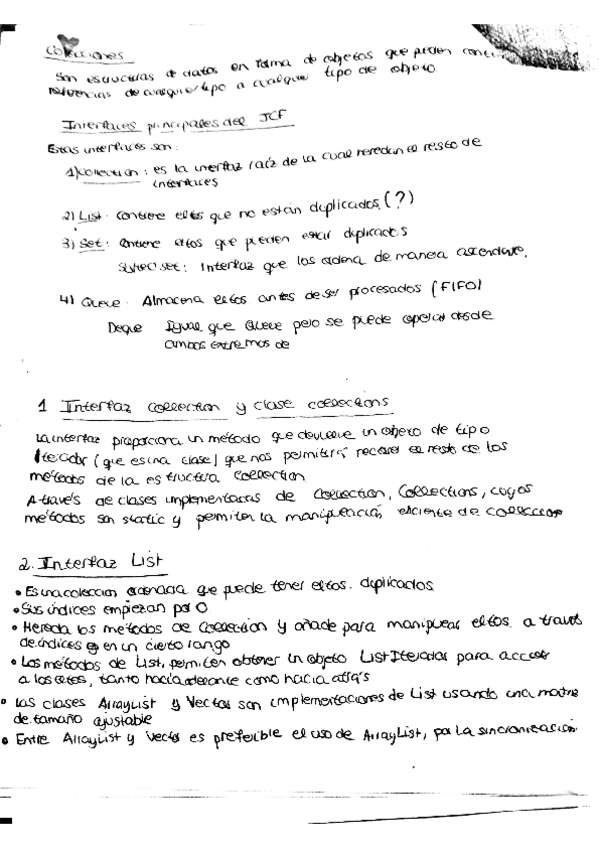 Colecciones
Son estructuras de datos en forma de objetos que pueden
referencias de cualquier tipo a cualquier tipo de objeto
Interfaces principales del JCF
Estas interfaces son:
1) Collection: es la interfaz raíz de la cual heredan el resto de
interfaces
2) List: Contiene eltos que no están duplicados (?)
3) Set: Contiene eltos que pueden estar duplicados
Sorted set: Interfaz que los ordena de manera ascendente.
4) Queue: Almacena eltos antes de ser procesados (FIFO)
Deque Igual que Queue pero se puede operar desde
ambos extremos de
1 Interfaz collection y clase collections
La interfaz proporciona un método que devuelve un objeto de tipo
Iterador (que es una clase) que nos permitirá recorrer el resto de los
métodos de la estructura collection
A través de clases implementadas de Collection, Collections, cuyos
métodos son static y permiten la manipulación eficiente de colección
2. Interfaz List
• Es una coleccion ordenada que puede tener eltos. duplicados
• Sus índices empiezan por 0
• Hereda los métodos de Collection y añade para manipular eltos. a través
de índices en un cierto rango
• Los métodos de List, permiten obtener un objeto ListIterador para acceder
a los eltos, tanto hacia delante como hacia atrás
• Las clases ArrayList y Vector son implementaciones de List usando una matriz
de tamaño ajustable
• Entre ArrayList y Vector es preferible el uso de ArrayList, por la sincronización